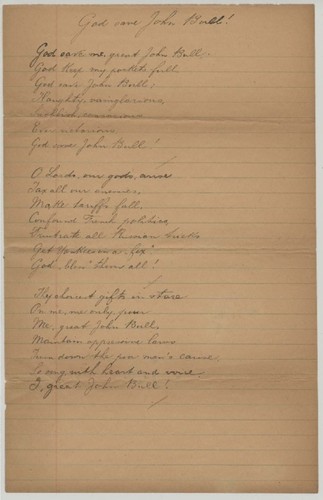 God save John Bull!
God save me, great John Bull,
God keep my pockets full,
God save John Bull;
Haughty, vainglorious,
Ever
God save John Bull!
O Lords, our gods, arise
Tax all our enemies,
Make tariffs fall,
Confound French politics,
Frustrate all Russian tricks
Get Yankees in a "fix"
God bless them all!
Thy choicest gifts in store
On me, me only, pour
Me, great John Bull,
Maintain oppressive laws
Turn down the poor men's cause,
So sing with heart and voice
I, great John Bull!